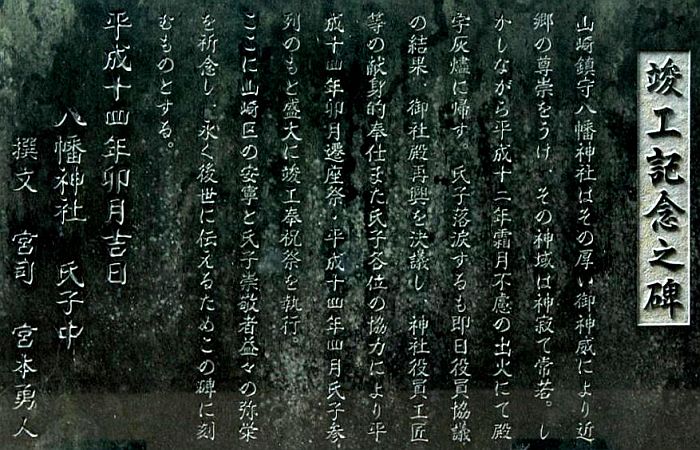 竣工記念之碑
山崎鎮守八幡神社はその厚い御神威により近
郷の尊崇をうけ、その神域は神寂て常若。し
かしながら平成十二年霜月不慮の出火にて殿
宇灰燼に帰す。氏子落涙するも即日役員協議
の結果、御社殿再興を決議し、神社役員工匠
等の献身的奉仕また氏子各位の協力により平
成十四年卯月遷座祭・平成十四年四月氏子参
列のもと盛大に竣工奉祝祭を執行。
ここに山崎区の安寧と氏子崇敬者益々の弥栄
を祈念し、永く後世に伝えるためこの碑に刻
むものとする。
平成十四年卯月吉日
八幡神社 氏子中
撰文 宮司 宮本勇人